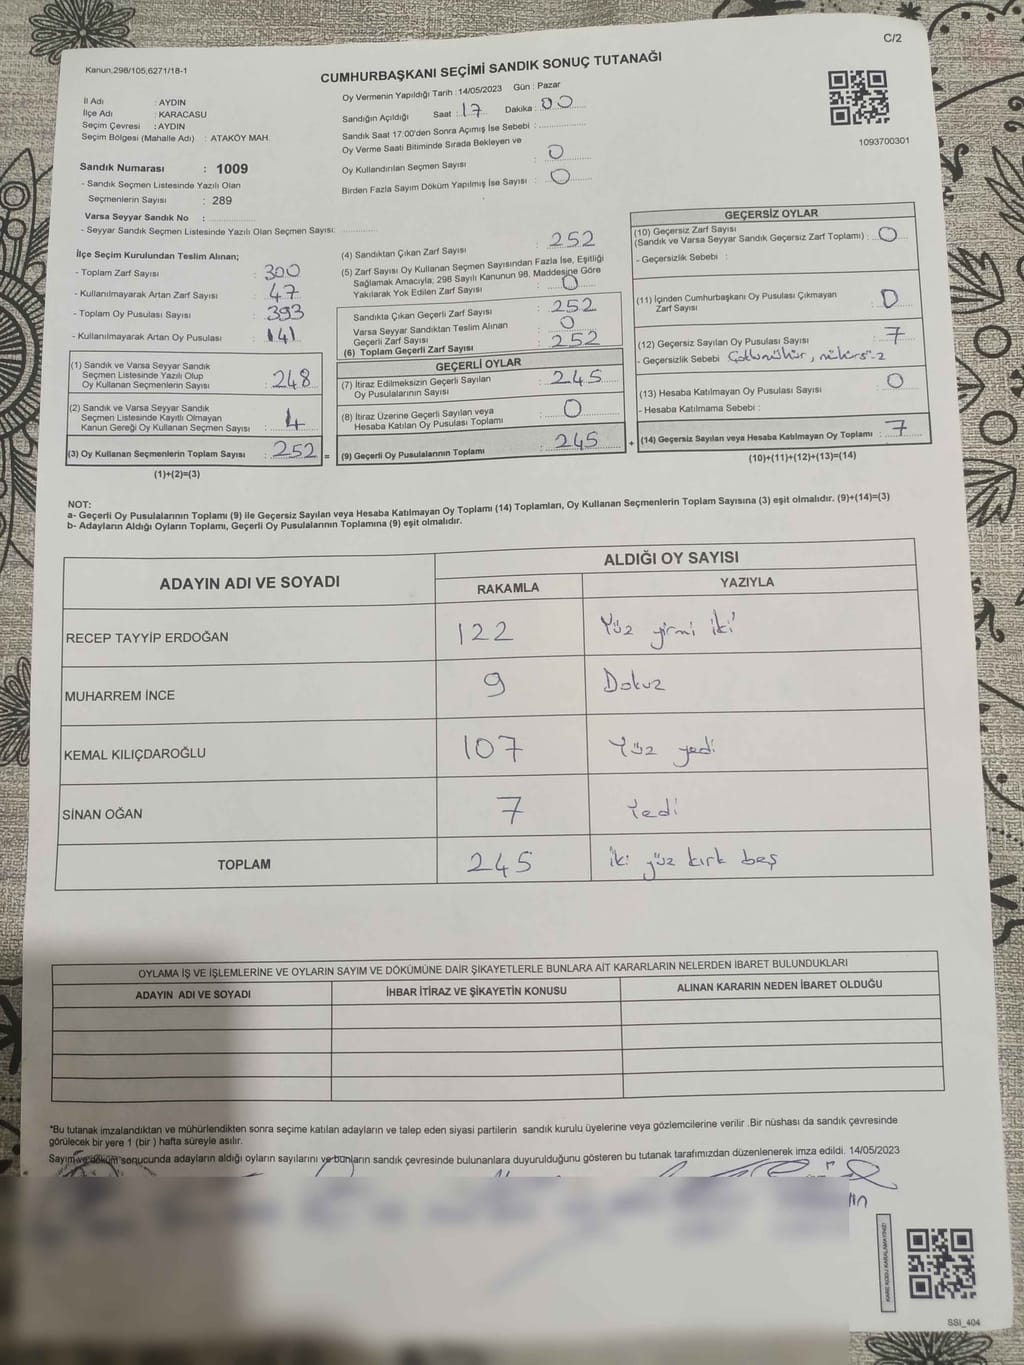 C/2
Kanun,298/105,6271/18-1
CUMHURBAŞKANI SEÇİMİ SANDIK SONUÇ TUTANAĞI
İl Adı : AYDIN
İlçe Adı : KARACASU
Seçim Çevresi : AYDIN
Seçim Bölgesi (Mahalle Adı) : ATAKÖY MAH.
Sandık Numarası : 1009
- Sandık Seçmen Listesinde Yazılı Olan
Seçmenlerin Sayısı : 289
Varsa Seyyar Sandık No :
- Seyyar Sandık Seçmen Listesinde Yazılı Olan Seçmen Sayısı:
Oy Vermenin Yapıldığı Tarih : 14/05/2023 Gün : Pazar
Sandığın Açıldığı Saat : 17 Dakika : 00
Sandık Saat 17:00'den Sonra Açımış İse Sebebi :
Oy Verme Saati Bitiminde Sırada Bekleyen ve
Oy Kullandırılan Seçmen Sayısı : 0
Birden Fazla Sayım Döküm Yapılmış İse Sayısı : 0
1093700301
İlçe Seçim Kurulundan Teslim Alınan;
- Toplam Zarf Sayısı : 300
- Kullanılmayarak Artan Zarf Sayısı : 47
- Toplam Oy Pusulası Sayısı : 393
- Kullanılmayarak Artan Oy Pusulası : 141
(1) Sandık ve Varsa Seyyar Sandık
Seçmen Listesinde Yazılı Olup
Oy Kullanan Seçmenlerin Sayısı : 248
(2) Sandık ve Varsa Seyyar Sandık
Seçmen Listesinde Kayıtlı Olmayan
Kanun Gereği Oy Kullanan Seçmen Sayısı : 4
(3) Oy Kullanan Seçmenlerin Toplam Sayısı : 252 =
(1)+(2)=(3)
(4) Sandıktan Çıkan Zarf Sayısı : 252
(5) Zarf Sayısı Oy Kullanan Seçmen Sayısından Fazla İse, Eşitliği
Sağlamak Amacıyla, 298 Sayılı Kanunun 98. Maddesine Göre
Yakılarak Yok Edilen Zarf Sayısı : 0
Sandıkta Çıkan Geçerli Zarf Sayısı : 252
Varsa Seyyar Sandıktan Teslim Alınan
Geçerli Zarf Sayısı : 0
(6) Toplam Geçerli Zarf Sayısı : 252
GEÇERLİ OYLAR
(7) İtiraz Edilmeksizin Geçerli Sayılan
Oy Pusulasının Sayısı : 245
(8) İtiraz Üzerine Geçerli Sayılan veya
Hesaba Katılan Oy Pusulası Toplamı : 0
(9) Geçerli Oy Pusulalarının Toplamı : 245 +
GEÇERSİZ OYLAR
(10) Geçersiz Zarf Sayısı
(Sandık ve Varsa Seyyar Sandık Geçersiz Zarf Toplamı) : 0
- Geçersizlik Sebebi :
(11) İçinden Cumhurbaşkanı Oy Pusulası Çıkmayan
Zarf Sayısı : 0
(12) Geçersiz Sayılan Oy Pusulası Sayısı : 7
- Geçersizlik Sebebi
(13) Hesaba Katılmayan Oy Pusulası Sayısı : 0
- Hesaba Katılmama Sebebi :
(14) Geçersiz Sayılan veya Hesaba Katılmayan Oy Toplamı : 7
(10)+(11)+(12)+(13)=(14)
NOT:
a- Geçerli Oy Pusulalarının Toplamı (9) ile Geçersiz Sayılan veya Hesaba Katılmayan Oy Toplamı (14) Toplamları, Oy Kullanan Seçmenlerin Toplam Sayısına (3) eşit olmalıdır. (9)+(14)=(3)
b- Adayların Aldığı Oyların Toplamı, Geçerli Oy Pusulalarının Toplamına (9) eşit olmalıdır.
ADAYIN ADI VE SOYADI ALDIĞI OY SAYISI
RAKAMLA YAZIYLA
RECEP TAYYİP ERDOĞAN 122 Yüz yirmi iki
MUHARREM İNCE 9 Dokuz
KEMAL KILIÇDAROĞLU 107 Yüz yedi
SİNAN OĞAN 7 Yedi
TOPLAM 245 iki yüz kırk beş
OYLAMA İŞ VE İŞLEMLERİNE VE OYLARIN SAYIM VE DÖKÜMÜNE DAİR ŞİKAYETLERLE BUNLARA AİT KARARLARIN NELERDEN İBARET BULUNDUKLARI
ADAYIN ADI VE SOYADI İHBAR İTİRAZ VE ŞİKAYETİN KONUSU ALINAN KARARIN NEDEN İBARET OLDUĞU
*Bu tutanak imzalandıktan ve mühürlendikten sonra seçime katılan adayların ve talep eden siyasi partilerin sandık kurulu üyelerine veya gözlemcilerine verilir .Bir nüshası da sandık çevresinde
görülecek bir yere 1 (bir ) hafta süreyle asılır.
Sayım ve döküm sonucunda adayların aldığı oyların sayılarını ve bunların sandık çevresinde bulunanlara duyurulduğunu gösteren bu tutanak tarafımızdan düzenlenerek imza edildi. 14/05/2023
KARE KODU KARALAMAYINIZ!
SSI_404